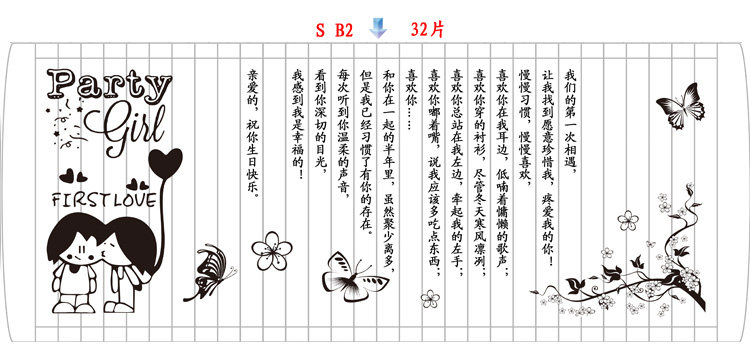 S B2 32片
Party
Girl
FIRST LOVE
我们的第一次相遇，
让我找到愿意珍惜我，疼爱我的你！
慢慢习惯，慢慢喜欢，
喜欢你在我耳边，低喃着慵懒的歌声；
喜欢你穿的衬衫，尽管冬天寒风凛冽；
喜欢你总站在我左边，牵起我的左手；
喜欢你嘟着嘴，说我应该多吃点东西；
喜欢你……
和你在一起的半年里，虽然聚少离多，
但是我已经习惯了有你的存在。
每次听到你温柔的声音，
看到你深切的目光，
我感到我是幸福的！
亲爱的，祝你生日快乐。